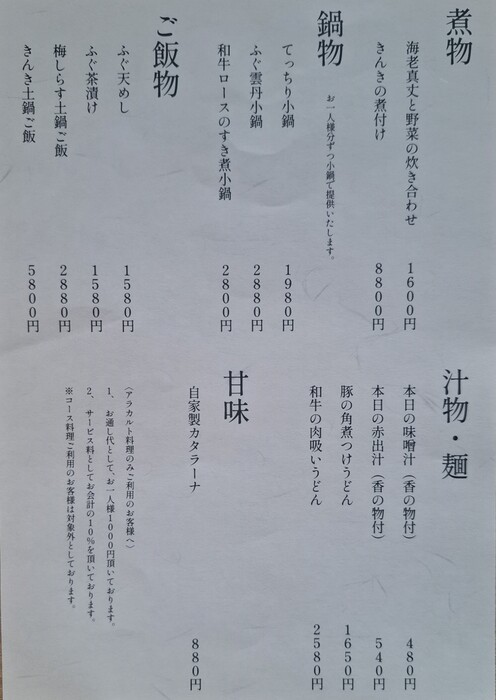 煮物
海老真丈と野菜の炊き合わせ　1600円
きんきの煮付け　8800円
鍋物　お一人様分ずつ小鍋で提供いたします。
てっちり小鍋　1980円
ふぐ雲丹小鍋　2880円
和牛ロースのすき煮小鍋　2800円
ご飯物
ふぐ天めし　1580円
ふぐ茶漬け　1580円
梅しらす土鍋ご飯　2880円
きんき土鍋ご飯　5800円
汁物・麺
本日の味噌汁（香の物付）　480円
本日の赤出汁（香の物付）　540円
豚の角煮つけうどん　1650円
和牛の肉吸いうどん　2580円
甘味
自家製カタラーナ　880円
〈アラカルト料理のみご利用のお客様へ〉
1、お通し代として、お一人様1000円頂いております。
2、サービス料としてお会計の10％を頂いております。
※コース料理ご利用のお客様は対象外としております。